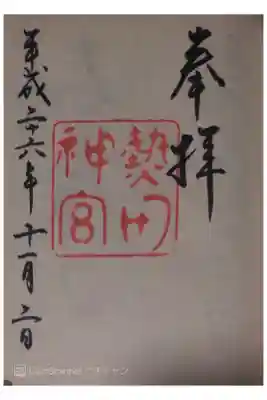 奉拝
熱田
神宮
平成二十六年十一月二日
CamScanner でスキャン